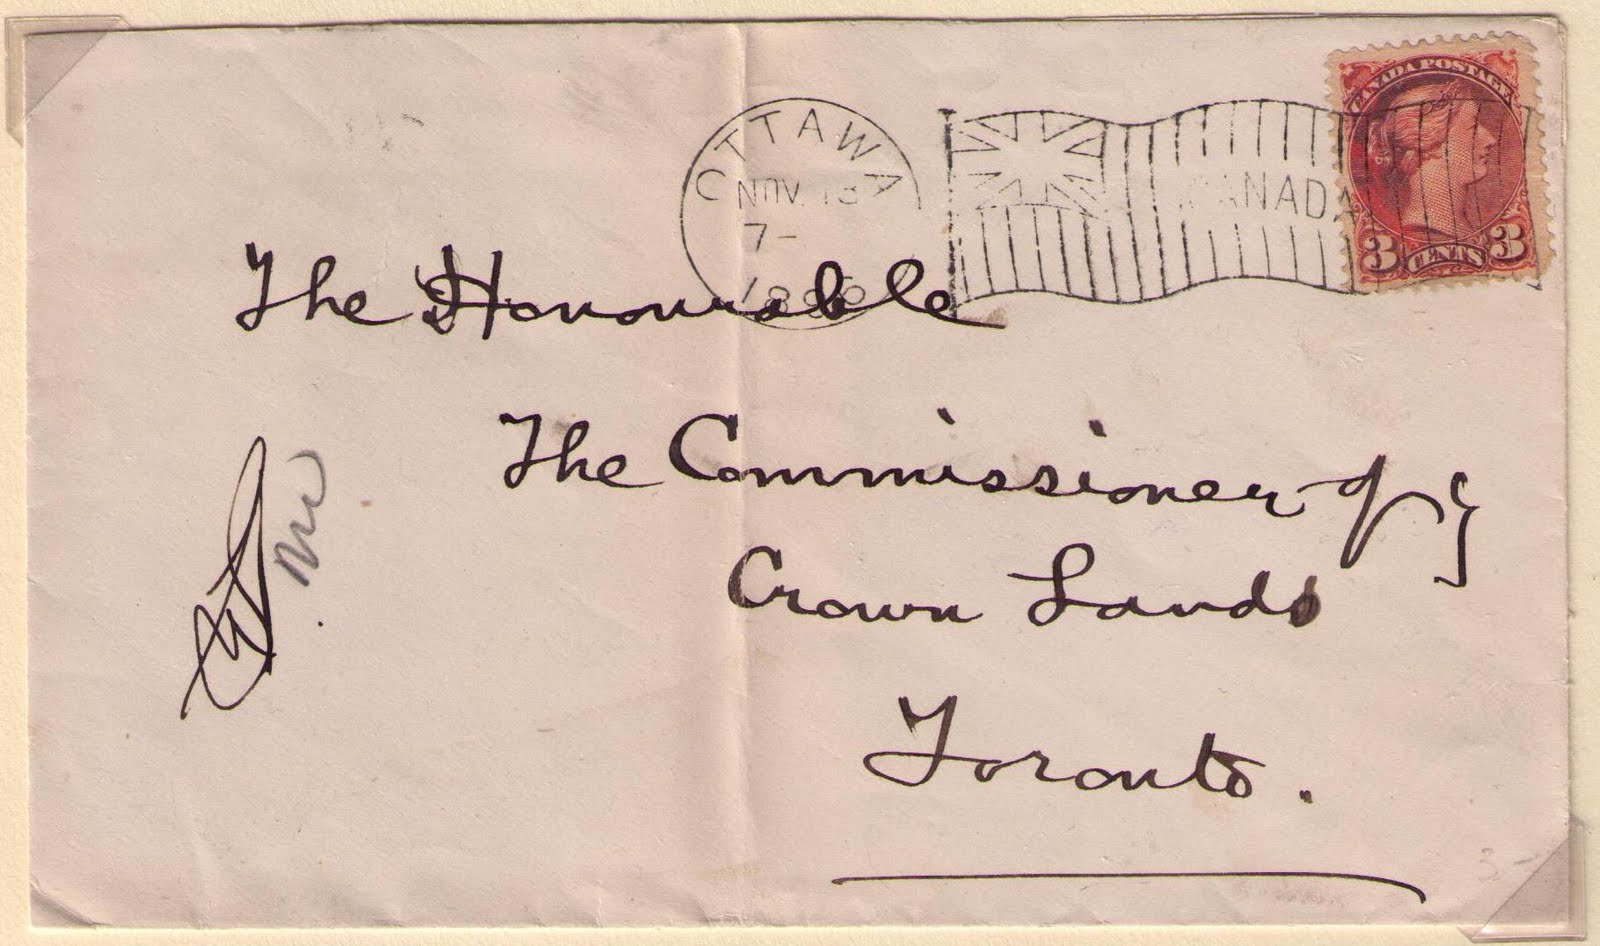 CANADA POSTAGE
OTTAWA
NOV. 13
7-
CANADA
3 CENTS 3
The Honourable
The Commissioner of
Crown Lands
Toronto.